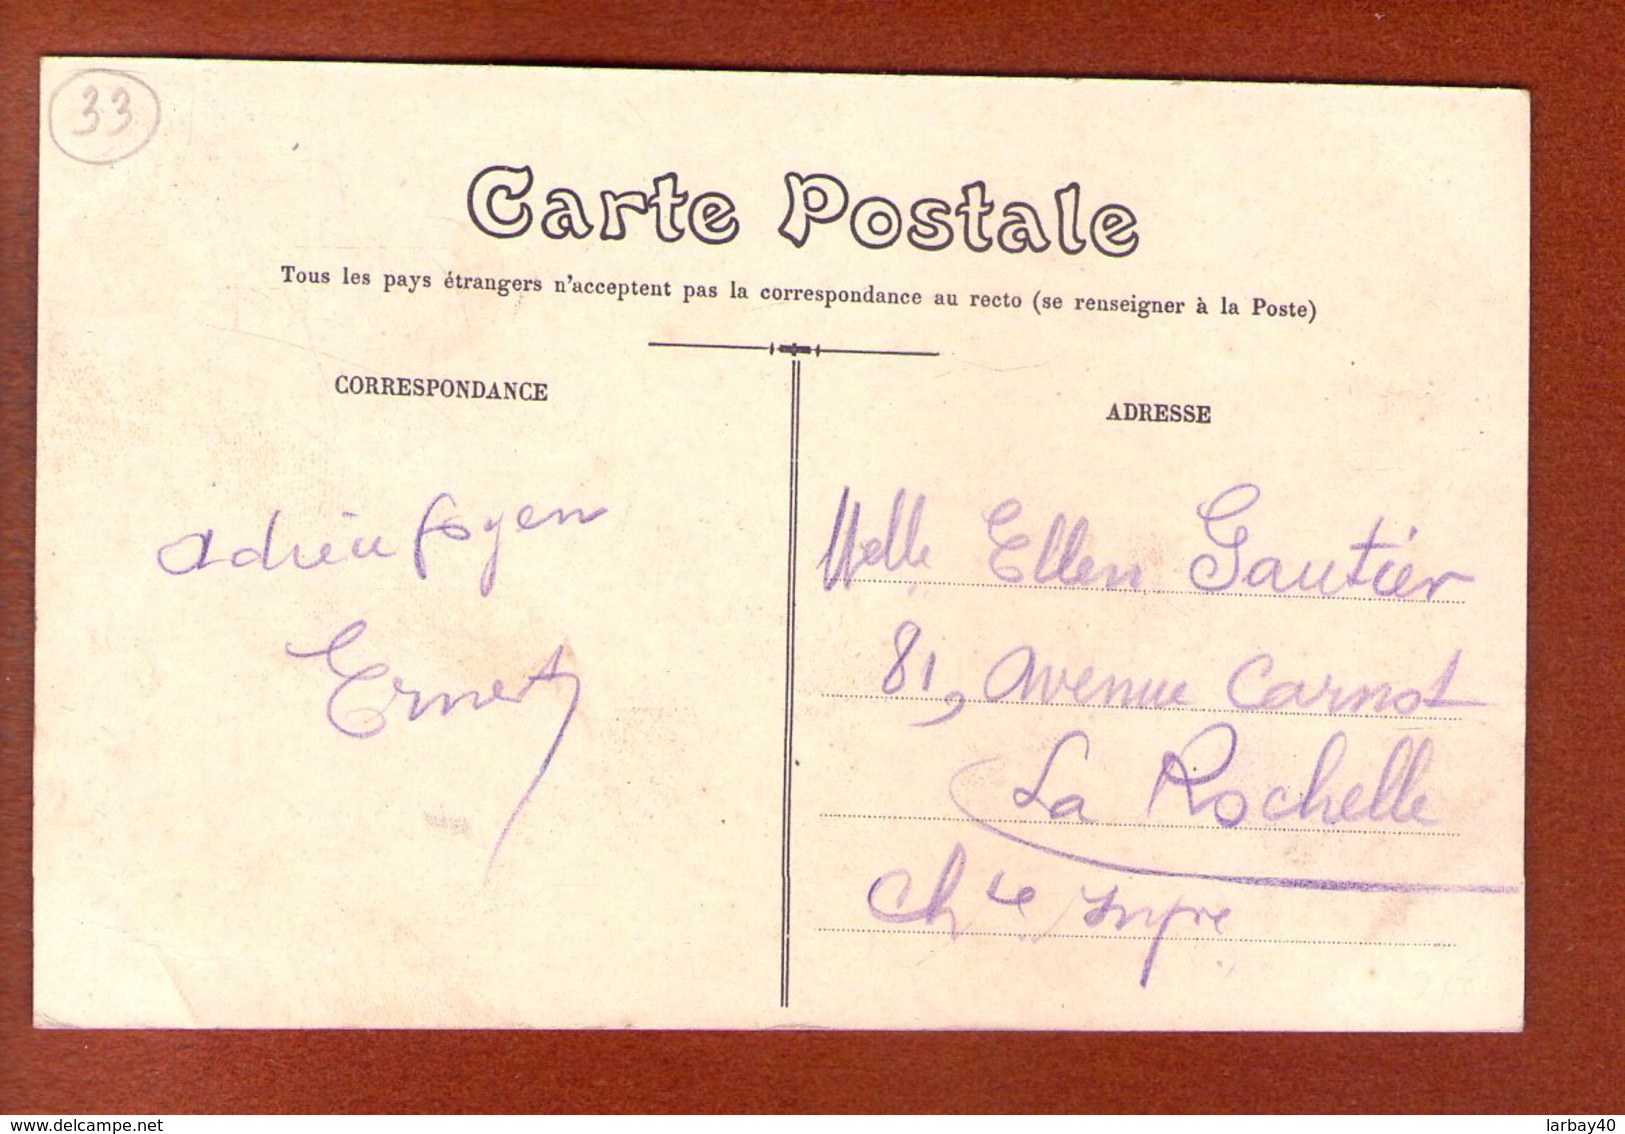 33
Carte Postale
Tous les pays étrangers n'acceptent pas la correspondance au recto (se renseigner à la Poste)
CORRESPONDANCE
adrieu foyen
Ernest
ADRESSE
Melle Ellen Gautier
81, avenue Carnot
La Rochelle
Chte Infre
www.delcampe.net
larbay40